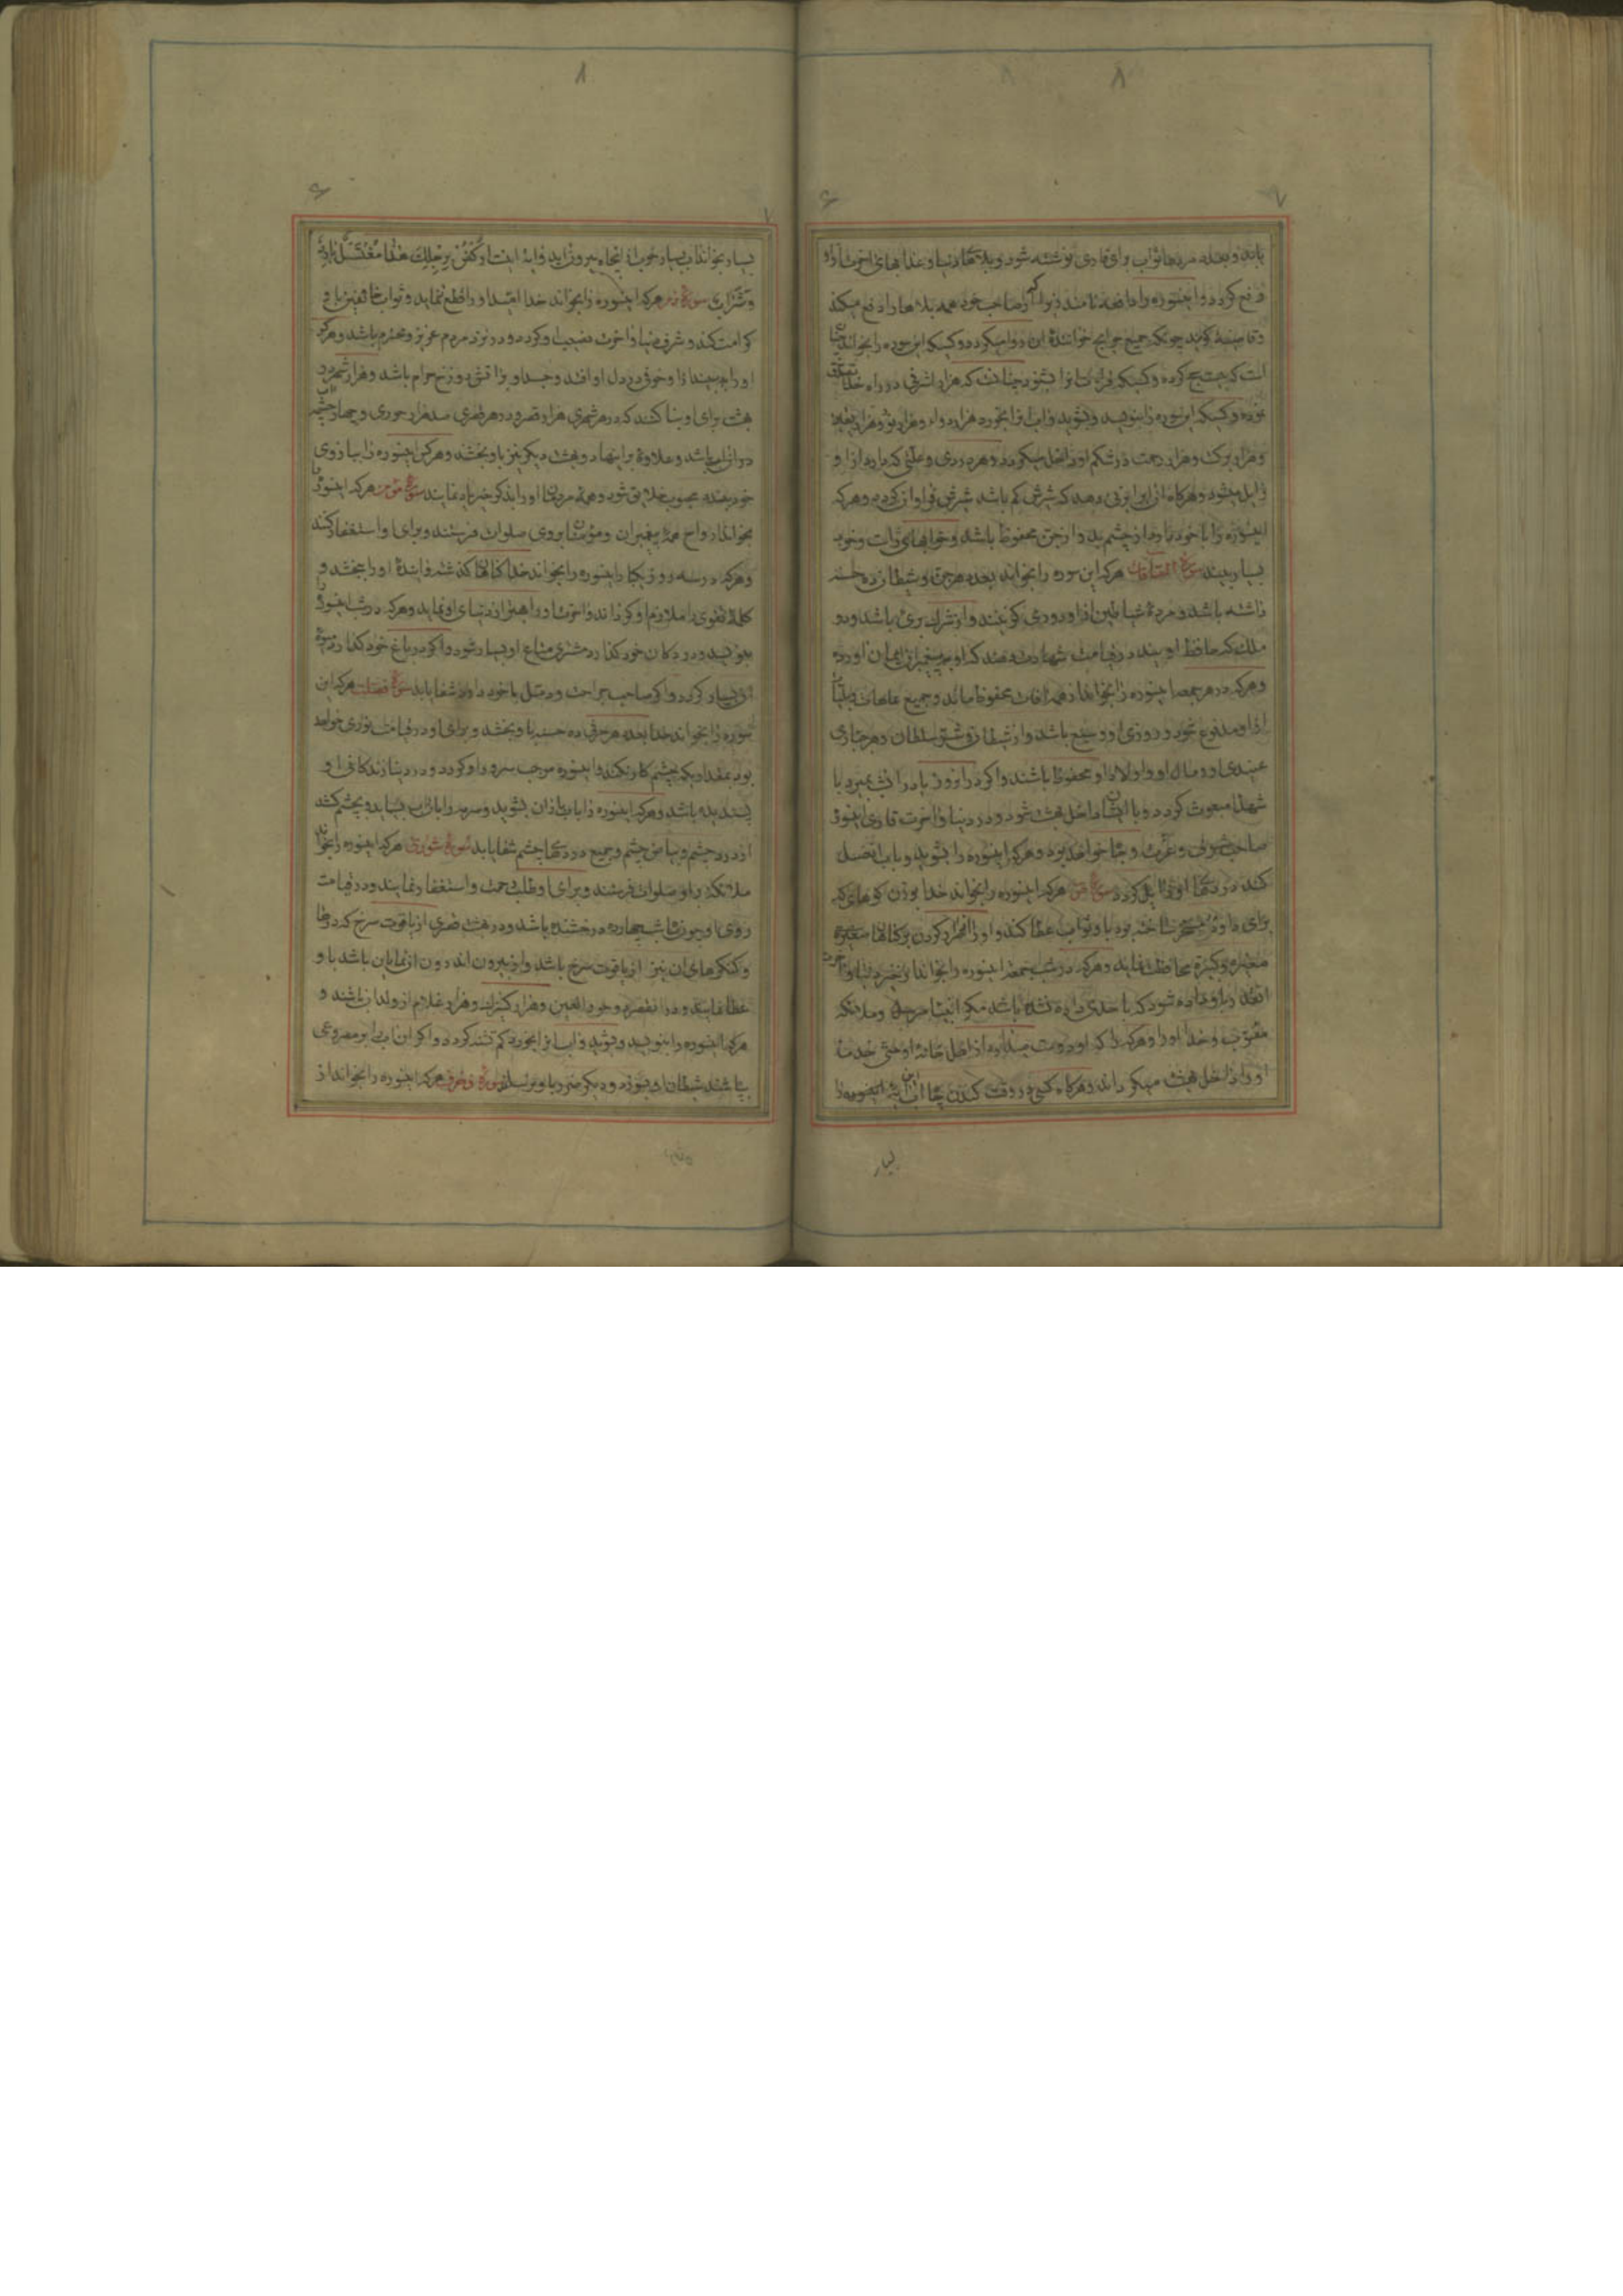 ۸
۷
یابند و بعدد مردها ثواب برای قاری نوشته شود و بلاهای دنیا و عذابهای اخرت از او
دفع کردد و اینسوره را دافعه نامند زیرا که از صاحب خود همه بلاها را دفع میکند
و قاضیه کویند چونکه جمیع حوایج خوانندهٔ ان روا میکردد و کسیکه این سوره را بخواند چنا
است که بیست حج کرده و کسیکه قرائت انرا بشنود چنانست که هزار اشرفی در راه خدا تصدق
نموده و کسیکه این سوره را بنویسد و بشوید و اب انرا بخورد هزار دوا و هزار نور و هزار یقین
و هزار برکت و هزار رحمت در شکم او داخل میکردد و هر دردی و علتی که دارد از او
زایل میشود و هرکاه زنی این را بنویسد که شیرش کم باشد شیرش فراوان کردد و هرکه
اینسوره را با خود دارد از چشم بد و از جن محفوظ باشد و خوابهای راست و خوب
بسیار بیند سورة الصافات هرکه این سوره را بخواند بعدد هر جن و شیطان ده حسنه
داشته باشد و مردهٔ شیاطین از او دوری کزینند و از شرک بری باشد و دو
ملک که حافظ اویند در قیامت شهادت دهند که او به پیغمبران ایمان اورده
و هرکه در هر جمعه اینسوره را بخواند از همه افات محفوظ ماند و جمیع عاهات و بلیات
از او مدفوع شود و روزی او وسیع باشد و از شیطان و شر سلطان و هر جباری
عنیدی او و مال او و اولاد او محفوظ باشند و اکر در انروز یا در انشب بمیرد با
شهدا مبعوث کردد و با ایشان داخل بهشت شود و در دنیا و اخرت قاری اینسوره
صاحب شوکت و عزت و جاه خواهد بود و هرکه اینسوره را بشوید و باب ان غسل
کند دردهای او زایل کردد سورة ص هرکه اینسوره را بخواند خدا بوزن کوههای که
برای داود مسخر ساخته بود باو ثواب عطا کند و او را از اصرار کردن بر کناهان صغیره
صغیره و کبیره محافظت نماید و هرکه در شب جمعه اینسوره را بخواند از خیر دنیا و اخرت
انقدر باو داده شود که باحدی داده نشده باشد مکر انبیا مرسل و ملائکه
مقرب و خدا او را و هرکه را که او دوست میدارد از اهل خانهٔ او حتی خدمت
او را داخل بهشت میکرداند و هرکاه کسی در وقت کندن چاه این ایه اینسوره را
بسیار
۸
بسیار بخواند اب بسیار خوب از انچاه بیرون اید و ایه اینست ارْکُضْ بِرِجْلِکَ هٰذا مُغْتَسَلٌ بارِدٌ
وَشَرابٌ سورة زمر هرکه اینسوره را بخواند خدا امید او را قطع ننماید و ثواب خائفین باو
کرامت کند و شرف دنیا و اخرت نصیب او کردد و در نزد مردم عزیز و محترم باشد و هرکه
او را به بیند از او خوفی در دل او افتد و جسد او بر اتش دوزخ حرام باشد و هزار شهر در
بهشت برای او بنا کنند که در هر شهری هزار قصر و در هر قصری صد هزار حوری و چهار چشمه
در ان باشد و علاوهٔ بر اینها دو بهشت دیکر نیز باو بخشند و هرکس اینسوره را ببازوی
خود بندد محبوب خلایق شود و همهٔ مردمان او را بذکر خیر یاد نمایند سورة مؤمن هرکه اینسوره را
بخواند ارواح همهٔ پیغمبران و مؤمنان بر وی صلوات فرستند و برای او استغفار کنند
و هرکه در سه روز یکبار اینسوره را بخواند خدا کناهان کذشته و ایندهٔ او را ببخشد و
کلمهٔ تقوی را ملازم او کرداند و اخرت او را بهتر از دنیای او نماید و هرکه در شب اینسوره را
بنویسد و در دکان خود کذارد مشتری متاع او بسیار شود و اکر در باغ خود کذارد میوهٔ
ان بسیار کردد و اکر صاحب جراحت و دمل با خود دارد شفا یابد سورة فصلت هرکه این
سوره را بخواند خدا بعدد هر حرفی ده حسنه باو بخشد و برای او در قیامت نوری خواهد
بود بمقداریکه چشم کار میکند و اینسوره موجب سرور او کردد و در دنیا زندکانی او
پسندیده باشد و هرکه اینسوره را باب باران بشوید و سرمه را باان اب بساید و بچشم کشد
از درد چشم و بیاض چشم و جمیع دردهای چشم شفا یابد سورة شوری هرکه اینسوره را بخواند
ملائکه بر او صلوات فرستند و برای او طلب رحمت و استغفار نمایند و در قیامت
روی او چون ماه شب چهارده درخشنده باشد و در بهشت قصری از یاقوت سرخ که درها
و کنکرهای ان نیز از یاقوت سرخ باشد و از بیرون اندرون ان نمایان باشد باو
عطا نمایند و در ان قصر دو حور العین و هزار کنیزک و هزار غلام از ولدان باشند و
هرکه اینسوره را بنویسد و بشوید و اب انرا بخورد کم تشنه کردد و اکر ان اب را بر مصروعی
بپاشند شیطان او بسوزد و دیکر ضرر باو نرساند سورة زخرف هرکه اینسوره را بخواند از